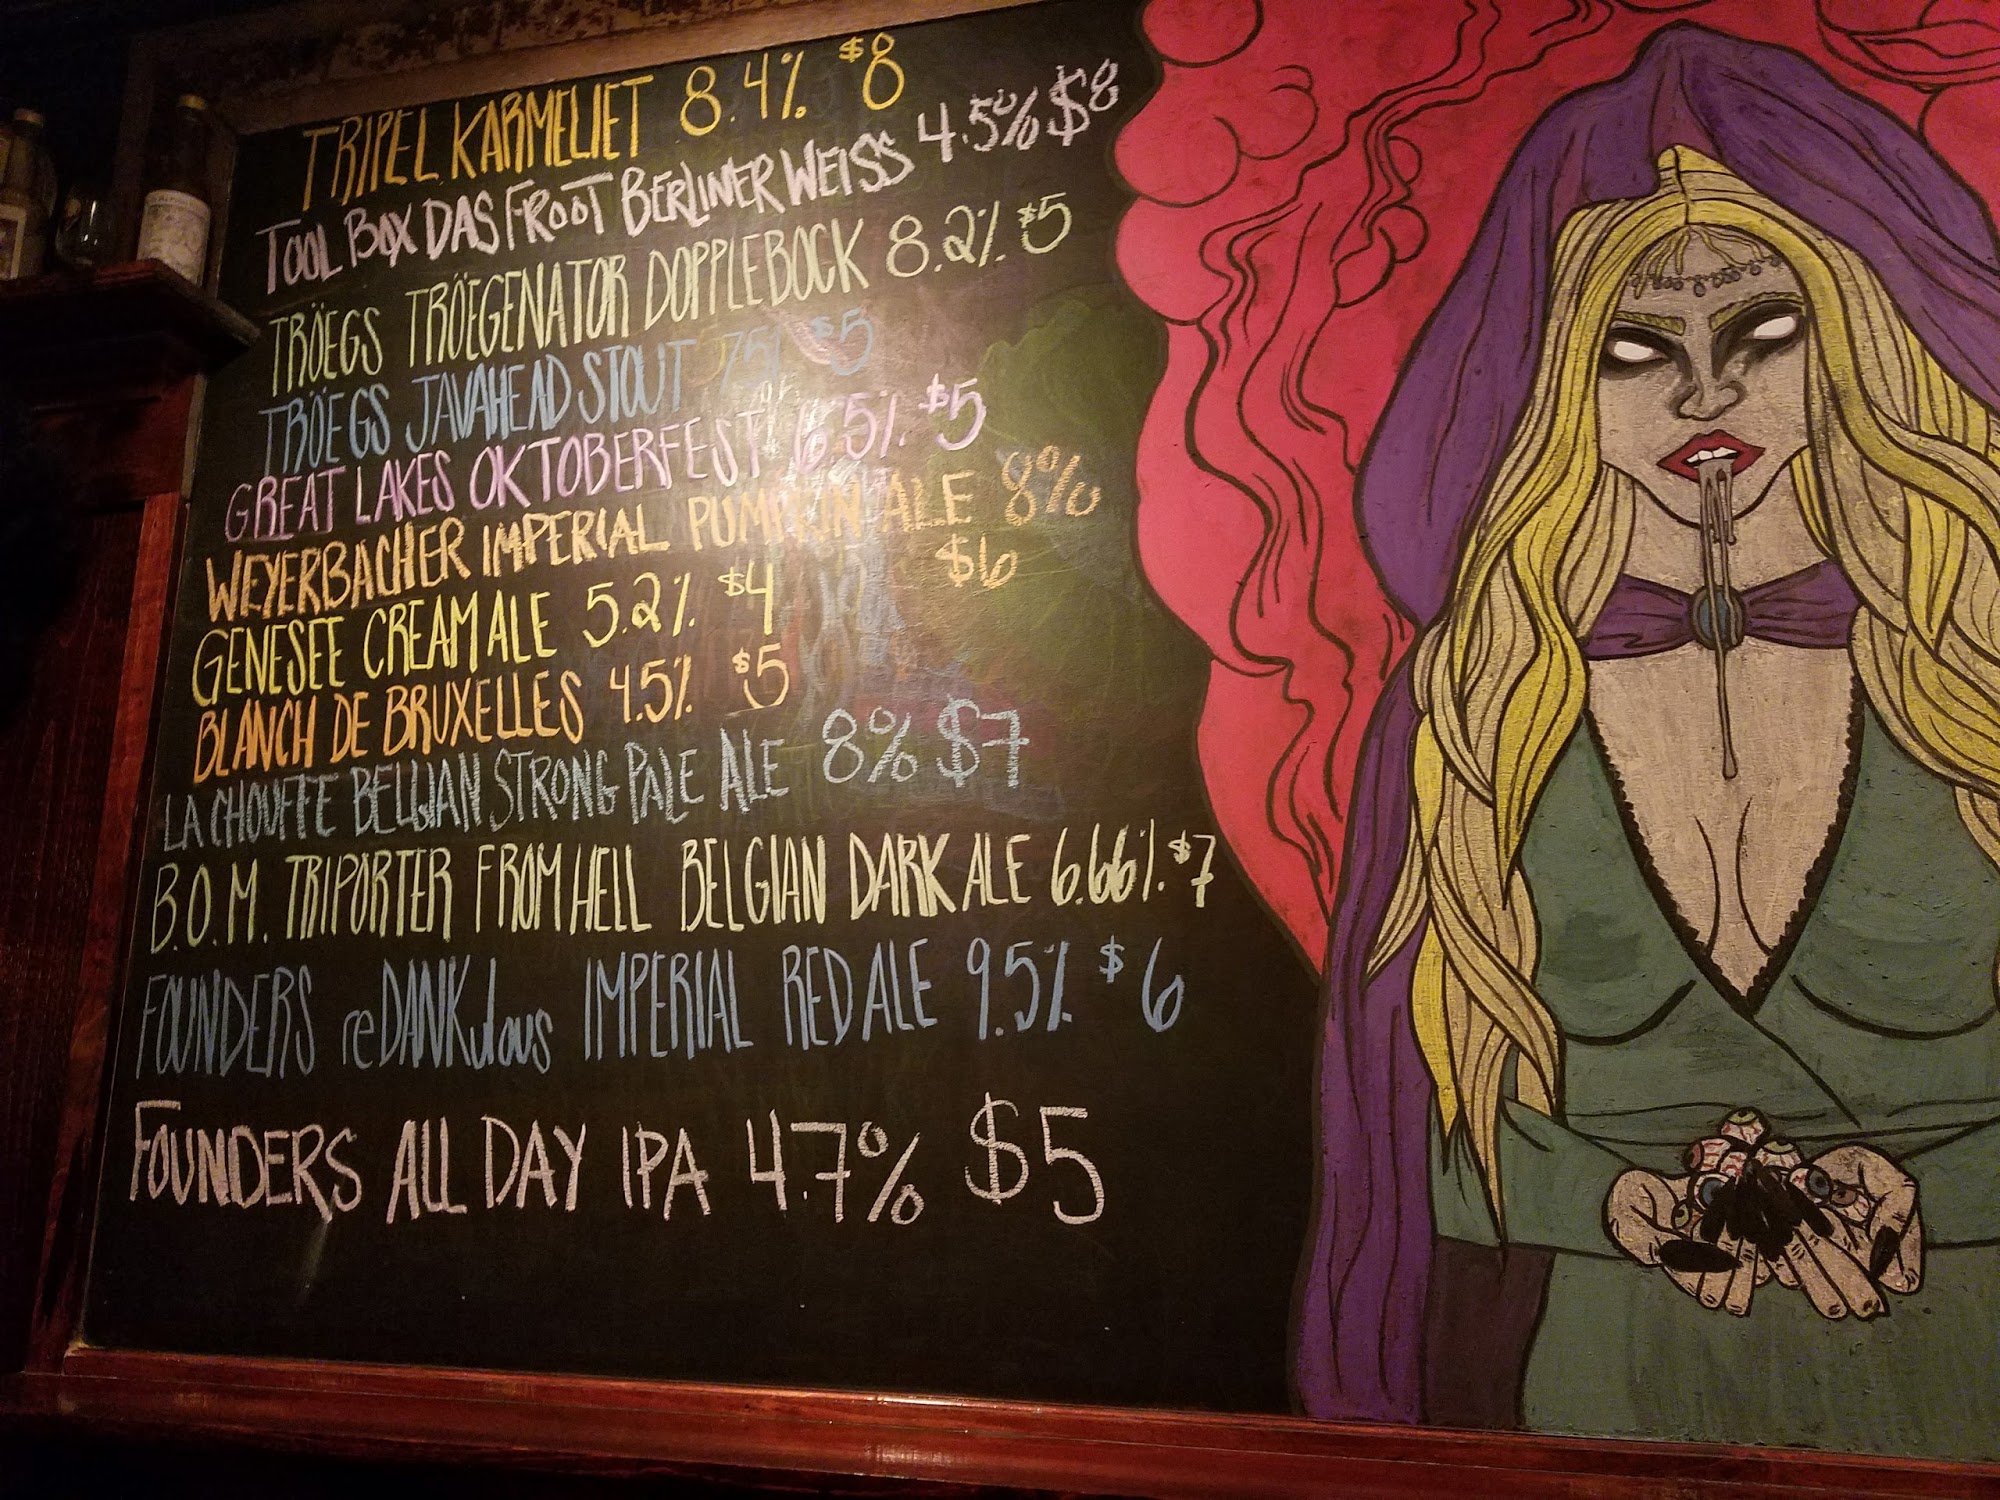 TRIPEL KARMELIET 8.4% $8
TOOL BOX DAS FROOT BERLINER WEISS 4.5% $8
TRÖEGS TRÖEGENATOR DOPPLEBOCK 8.2% $5
TRÖEGS JAVAHEAD STOUT 7.5% $5
GREAT LAKES OKTOBERFEST 6.5% $5
WEYERBACHER IMPERIAL PUMPKIN ALE 8%
$6
GENESEE CREAM ALE 5.2% $4
BLANCH DE BRUXELLES 4.5% $5
LA CHOUFFE BELGIAN STRONG PALE ALE 8% $7
B.O.M. TRIPORTER FROM HELL BELGIAN DARK ALE 6.66% $7
FOUNDERS reDANKulous IMPERIAL RED ALE 9.5% $6
FOUNDERS ALL DAY IPA 4.7% $5